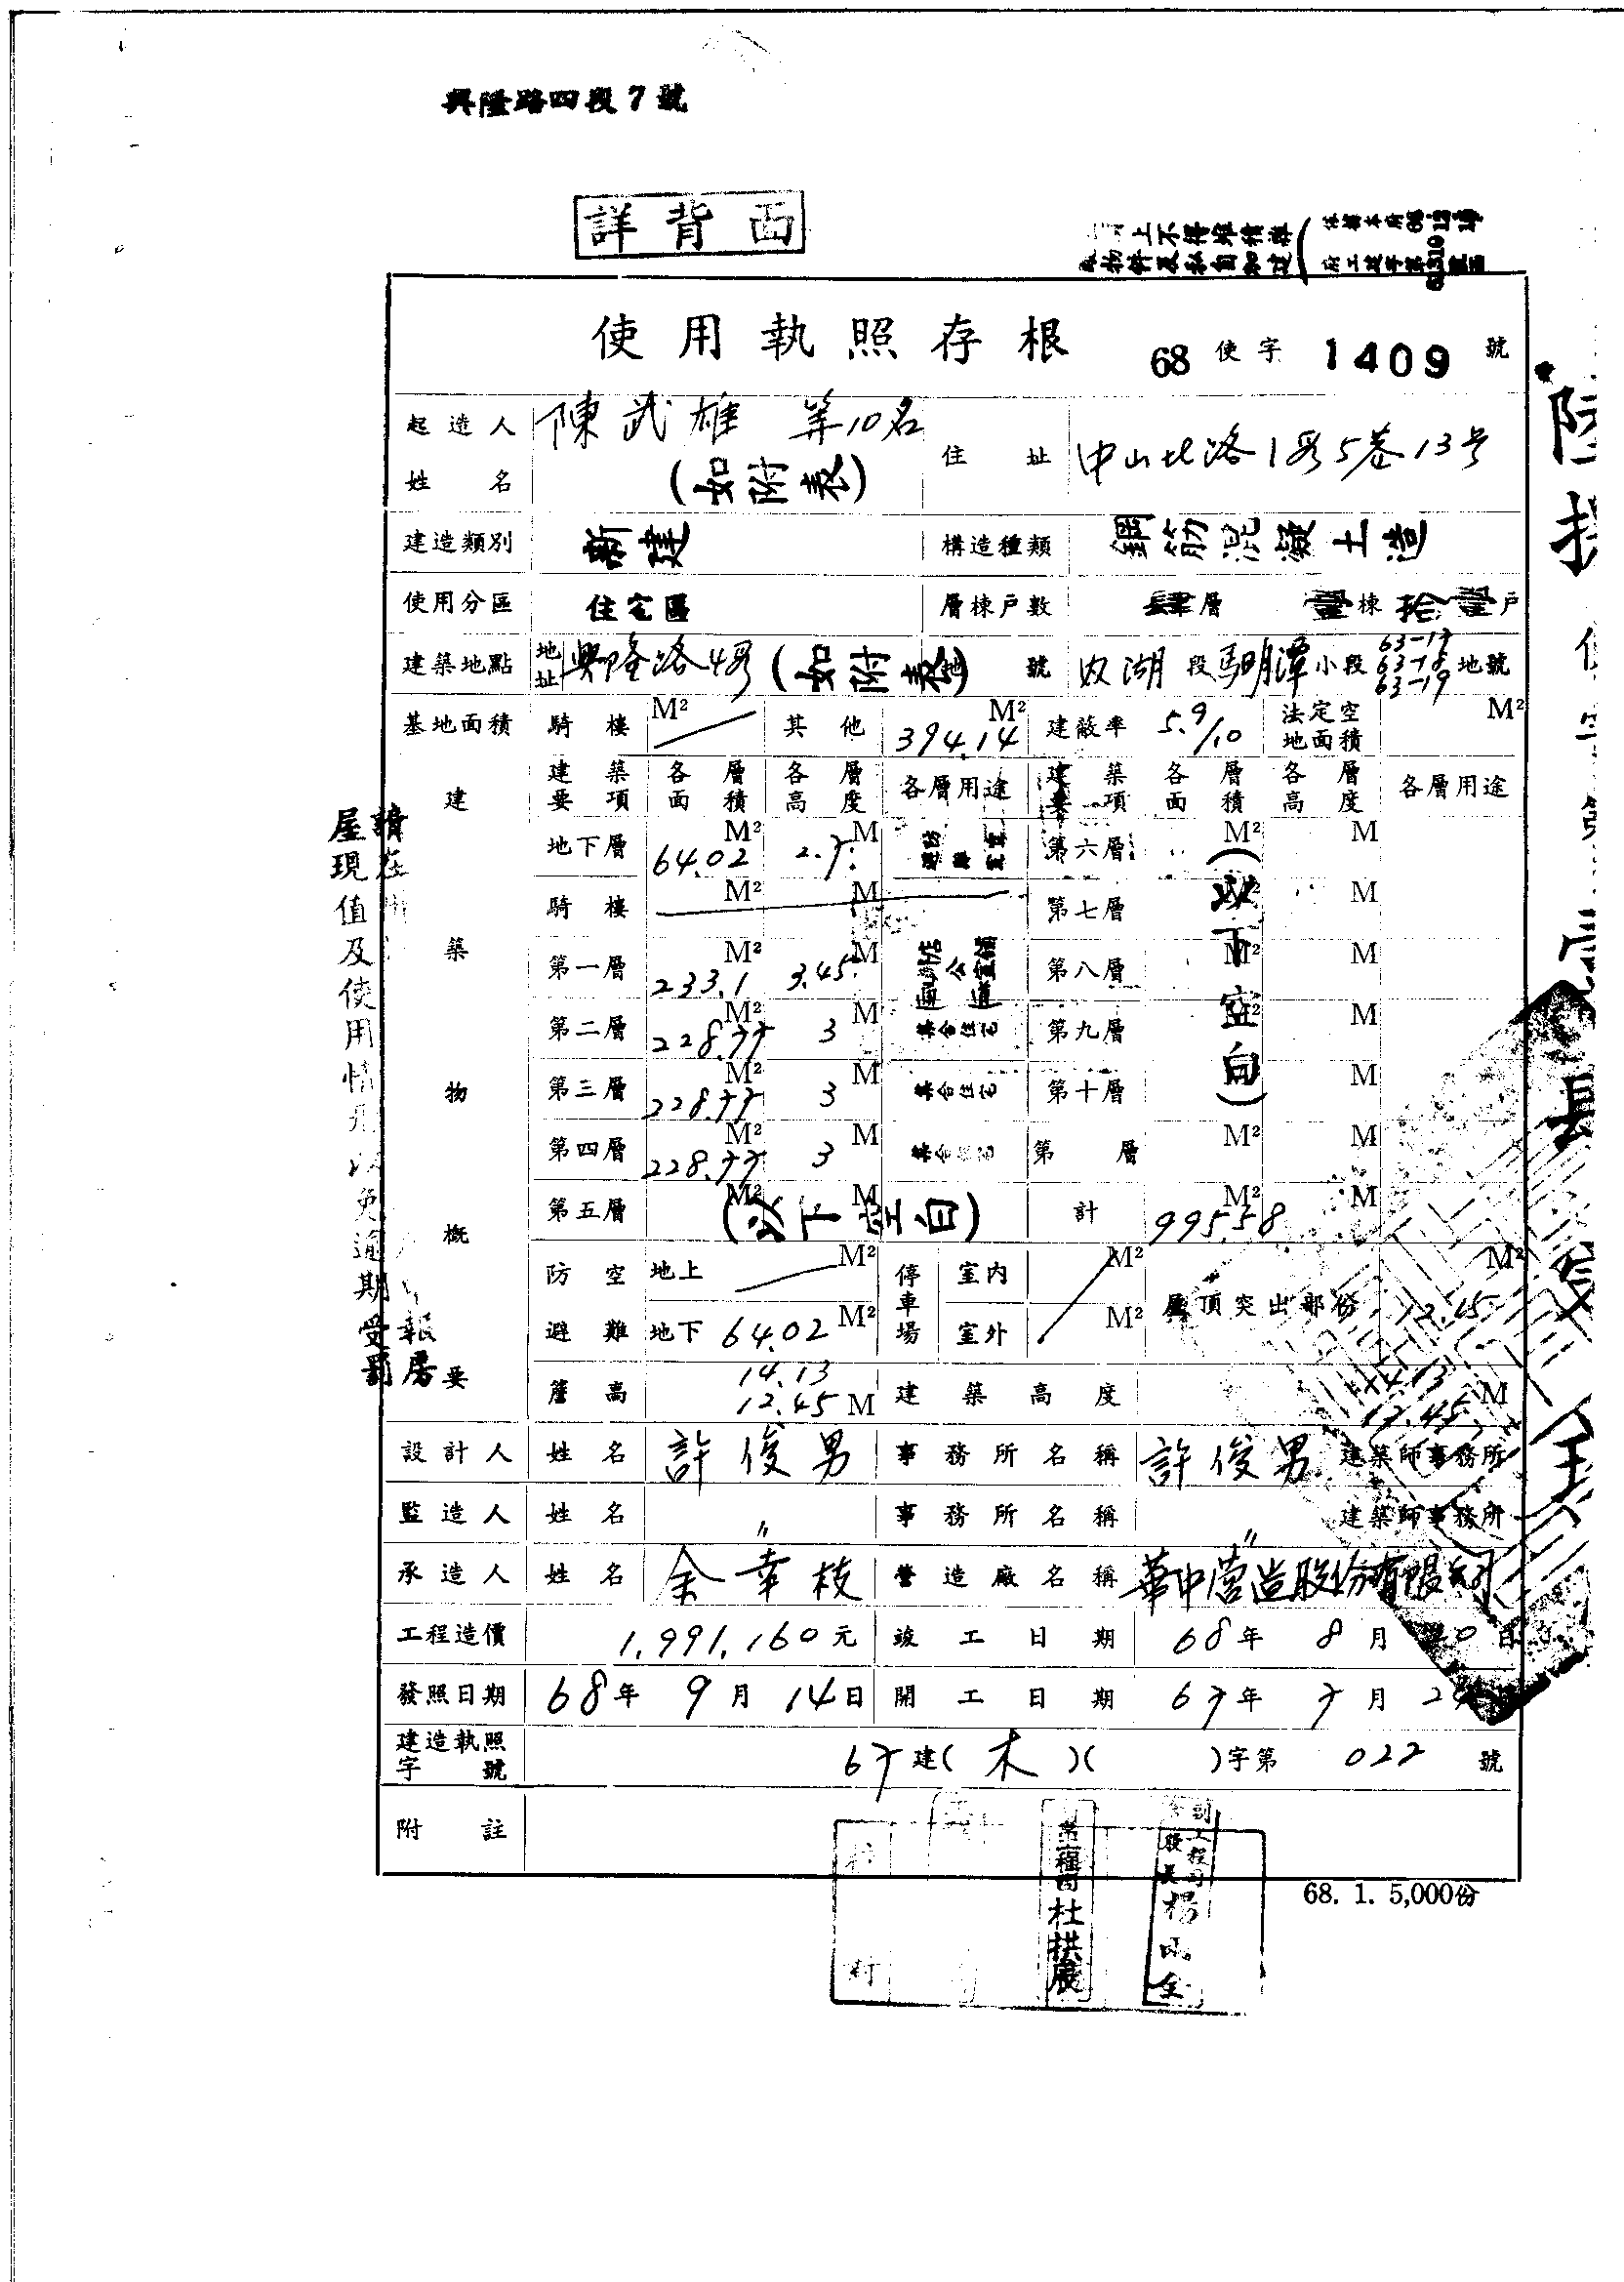 興隆路四段7號
詳背面
上不得堆積雜
物件及私自加建
使用執照存根 68 使字 1409 號
起造人姓名 陳武雄 等10名 (如附表) 住址 中山北路1段5巷13号
建造類別 新建 構造種類 鋼筋混凝土造
使用分區 住宅區 層棟戶數 肆層 壹棟 拾壹戶
建築地點 地址 興隆路4段 (如附表) 地號 內湖段 小段 63-17 63-18 63-19 地號
基地面積 騎樓 M² 其他 394.14 M² 建蔽率 5.9/10 法定空地面積 M²
建築物概要
建築要項 各層面積 各層高度 各層用途 建築要項 各層面積 各層高度 各層用途
地下層 64.02 M² 2.7 M 第六層 M² M
騎樓 M² M 第七層 M² M
第一層 233.1 M² 3.45 M 第八層 M² M
第二層 228.77 M² 3 M 集合住宅 第九層 M² M
第三層 228.77 M² 3 M 集合住宅 第十層 M² M
第四層 228.77 M² 3 M 集合住宅 第 層 M² M
(以下空白)
第五層 M² M (以下空白) 計 995.58 M² M
防空避難 地上 M² 停車場 室內 M² 屋頂突出部份 12.15 M²
地下 64.02 M² 室外 M²
簷高 14.13 12.45 M 建築高度 14.13 12.45 M
設計人 姓名 許俊男 事務所名稱 許俊男 建築師事務所
監造人 姓名 〃 事務所名稱 〃 建築師事務所
承造人 姓名 余幸枝 營造廠名稱 華中营造股份有限公司
工程造價 1,991,160元 竣工日期 68年 8月 日
發照日期 68年 9月 14日 開工日期 67年 7月
建造執照字號 67建(木)( )字第 022 號
附註
68. 1. 5,000份
屋現值及使用情形以免逾期受罰
杜拱宸